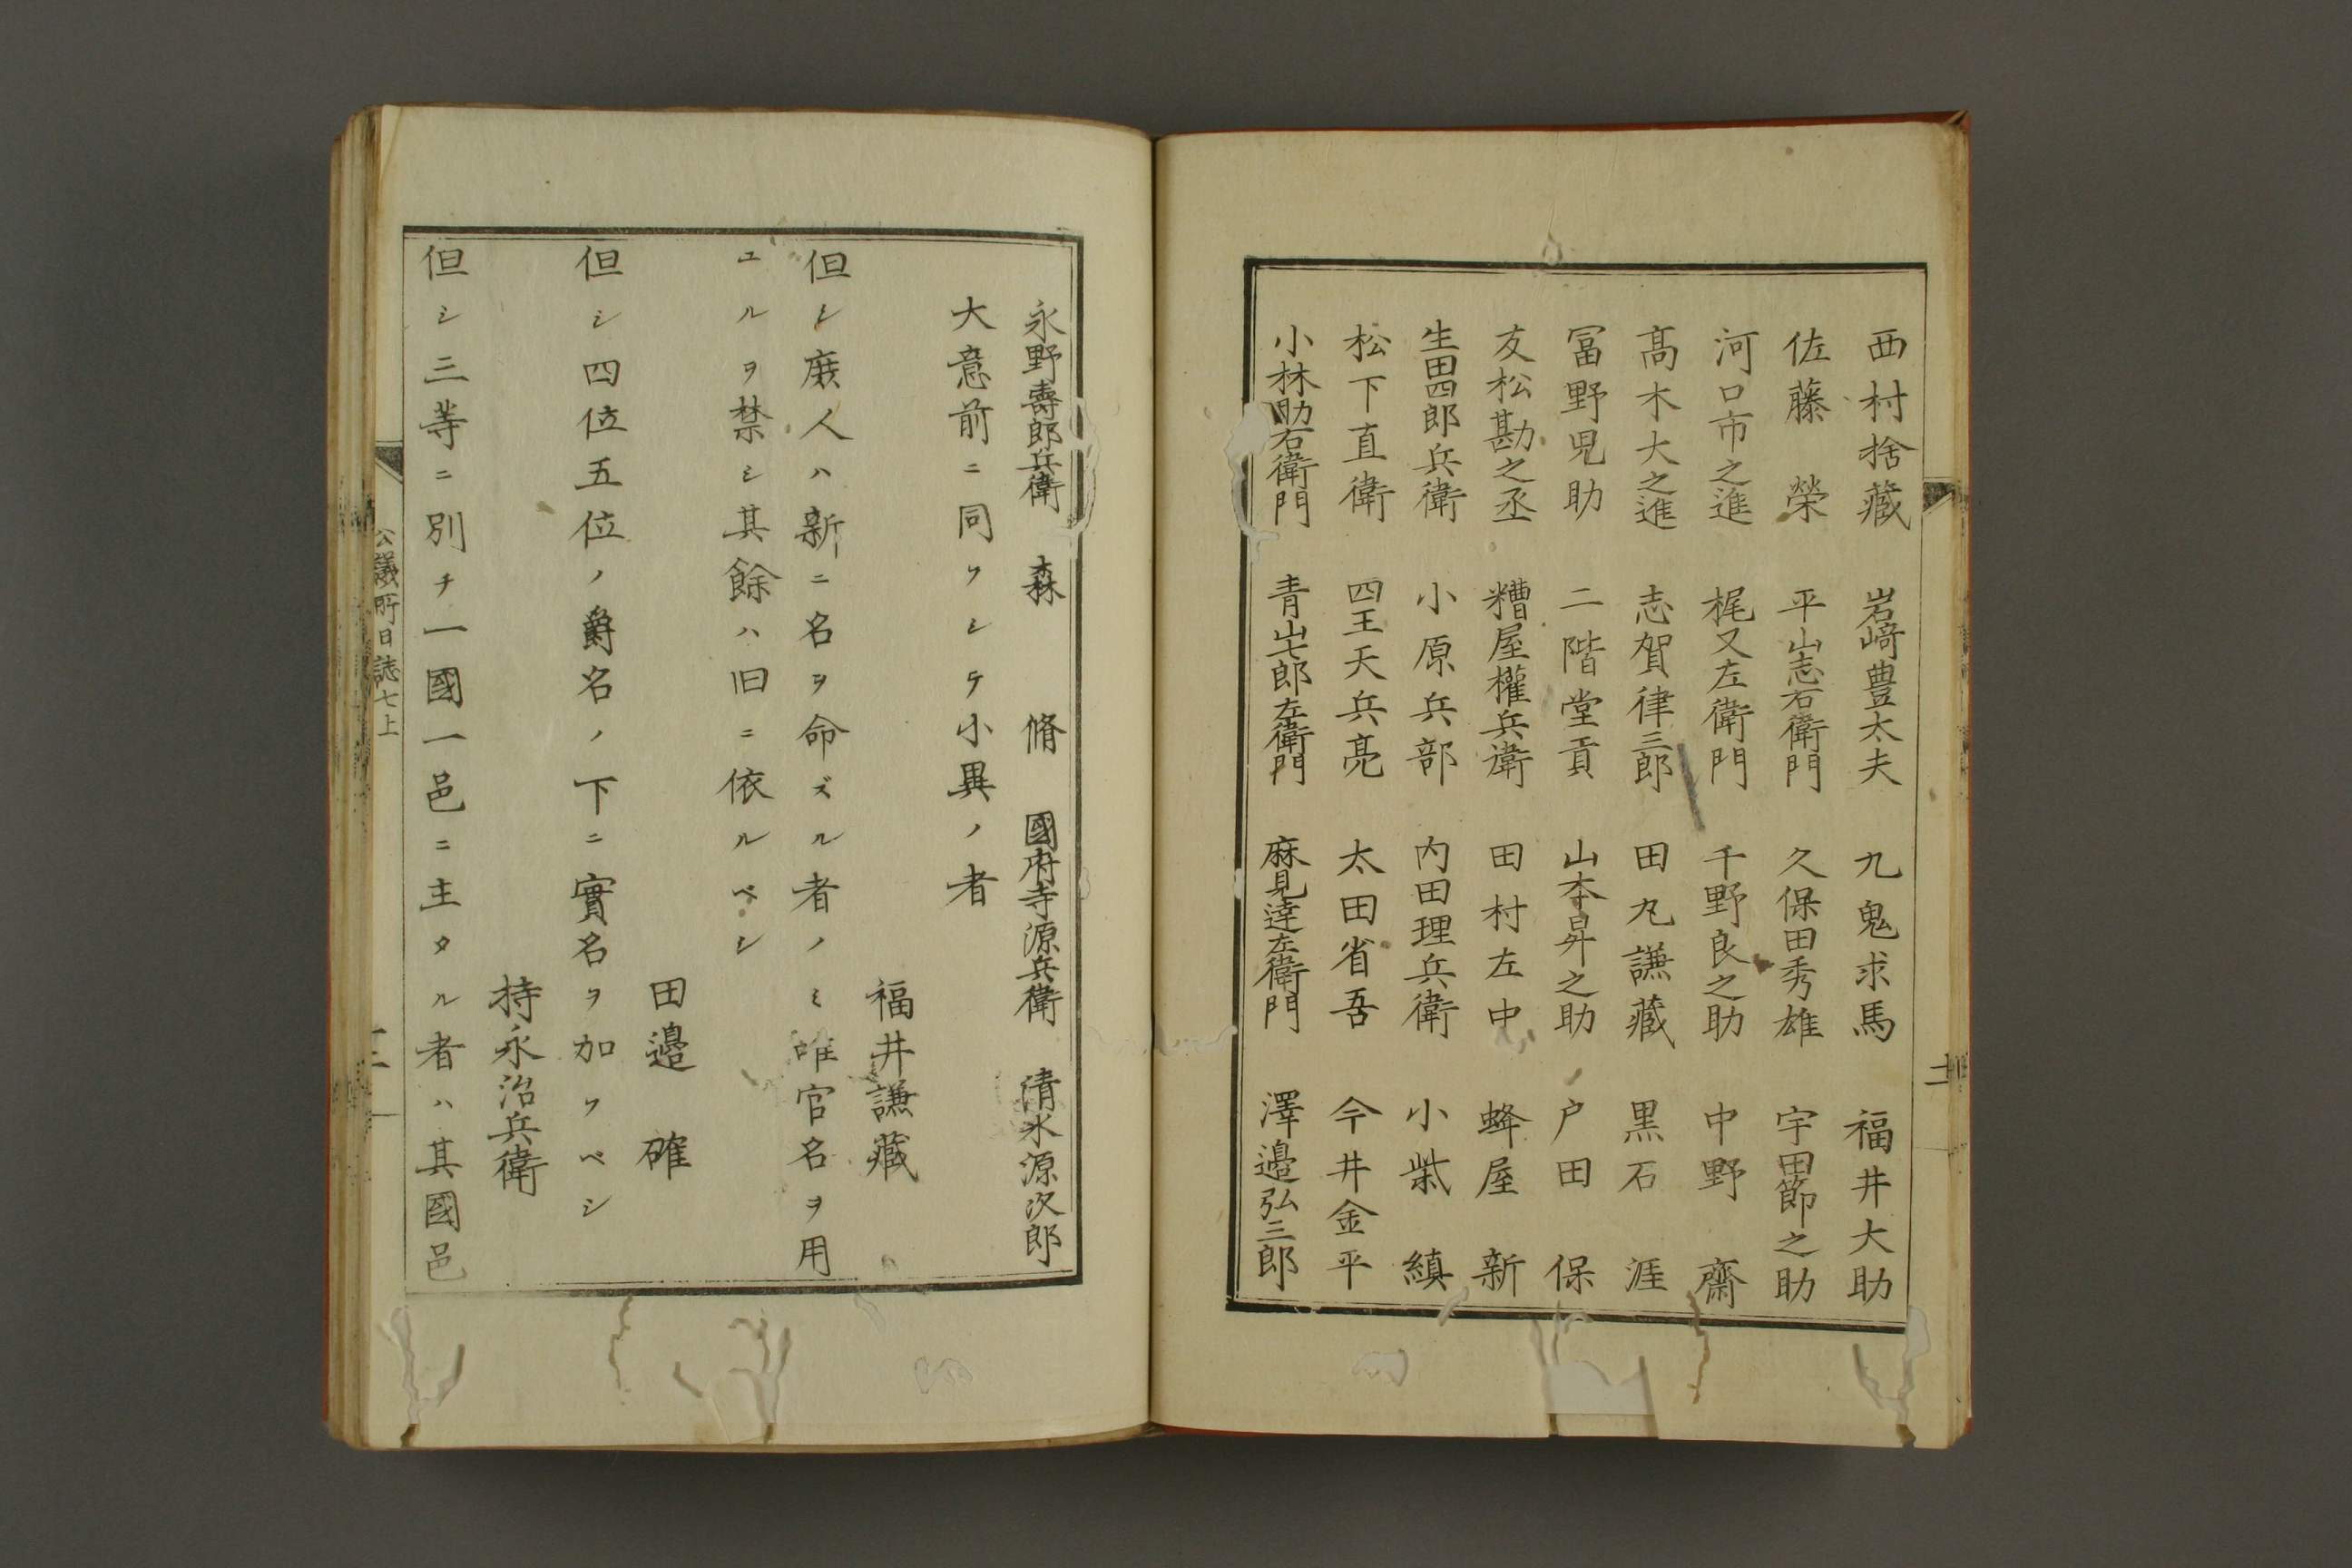 西村捨藏 岩﨑豊太夫 九鬼求馬 福井大助
佐藤榮 平山志右衛門 久保田秀雄 宇田節之助
河口市之進 梶又左衛門 千野良之助 中野齋
髙木大之進 志賀律三郎 田丸謙藏 黒石涯
冨野児助 二階堂貢 山本昇之助 戸田保
友松勘之丞 糟屋權兵衛 田村左中 蜂屋新
生田四郎兵衛 小原兵部 内田理兵衛 小柴縝
松下直衛 四王天兵亮 太田省吾 今井金平
小林助右衛門 青山七郎左衛門 麻見達左衛門 澤邉弘三郎
永野壽郎兵衛 森脩 國府寺源兵衛 清水源次郎
大意前ニ同フシテ小異ノ者
福井謙藏
但シ庶人ハ新ニ名ヲ命ズル者ノミ唯官名ヲ用
ユルヲ禁シ其餘ハ旧ニ依ルベシ
田邉確
但シ四位五位ノ爵名ノ下ニ實名ヲ加フベシ
持永治兵衛
但シ三等ニ別チ一國一邑ニ主タル者ハ其國邑
公議所日誌七上